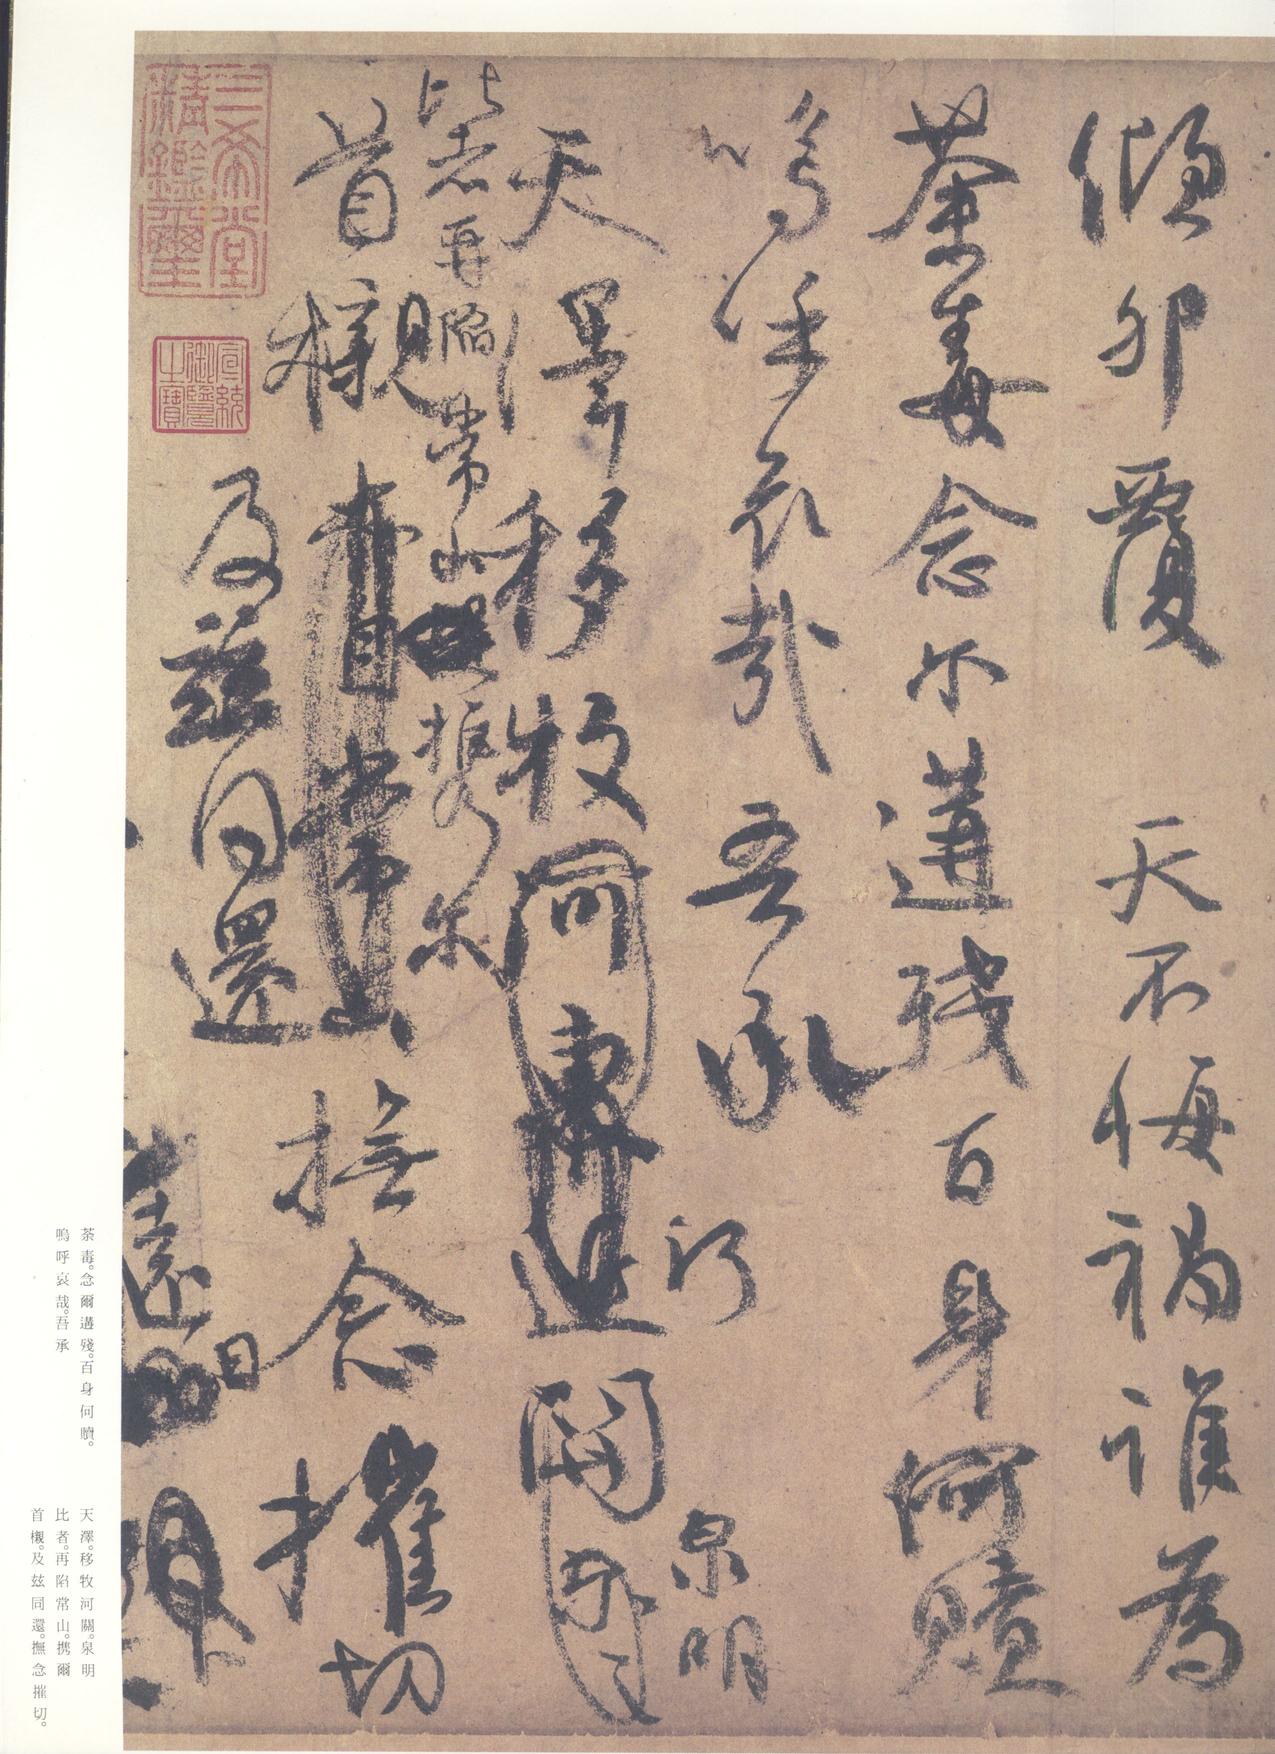 傾卵覆 天不悔禍誰為
荼毒念尔遘殘百身何贖
嗚呼哀哉吾承
天澤移牧河東近關
河 泉明
比者再陷常山携尔
首櫬 常山撫念摧切
及兹同還
遠日
三希堂
精鑑璽
宣統
御覽
之寶
荼毒。念爾遘殘。百身何贖。
嗚呼哀哉。吾承
天澤。移牧河關。泉明
比者。再陷常山。携爾
首櫬。及兹同還。撫念摧切。